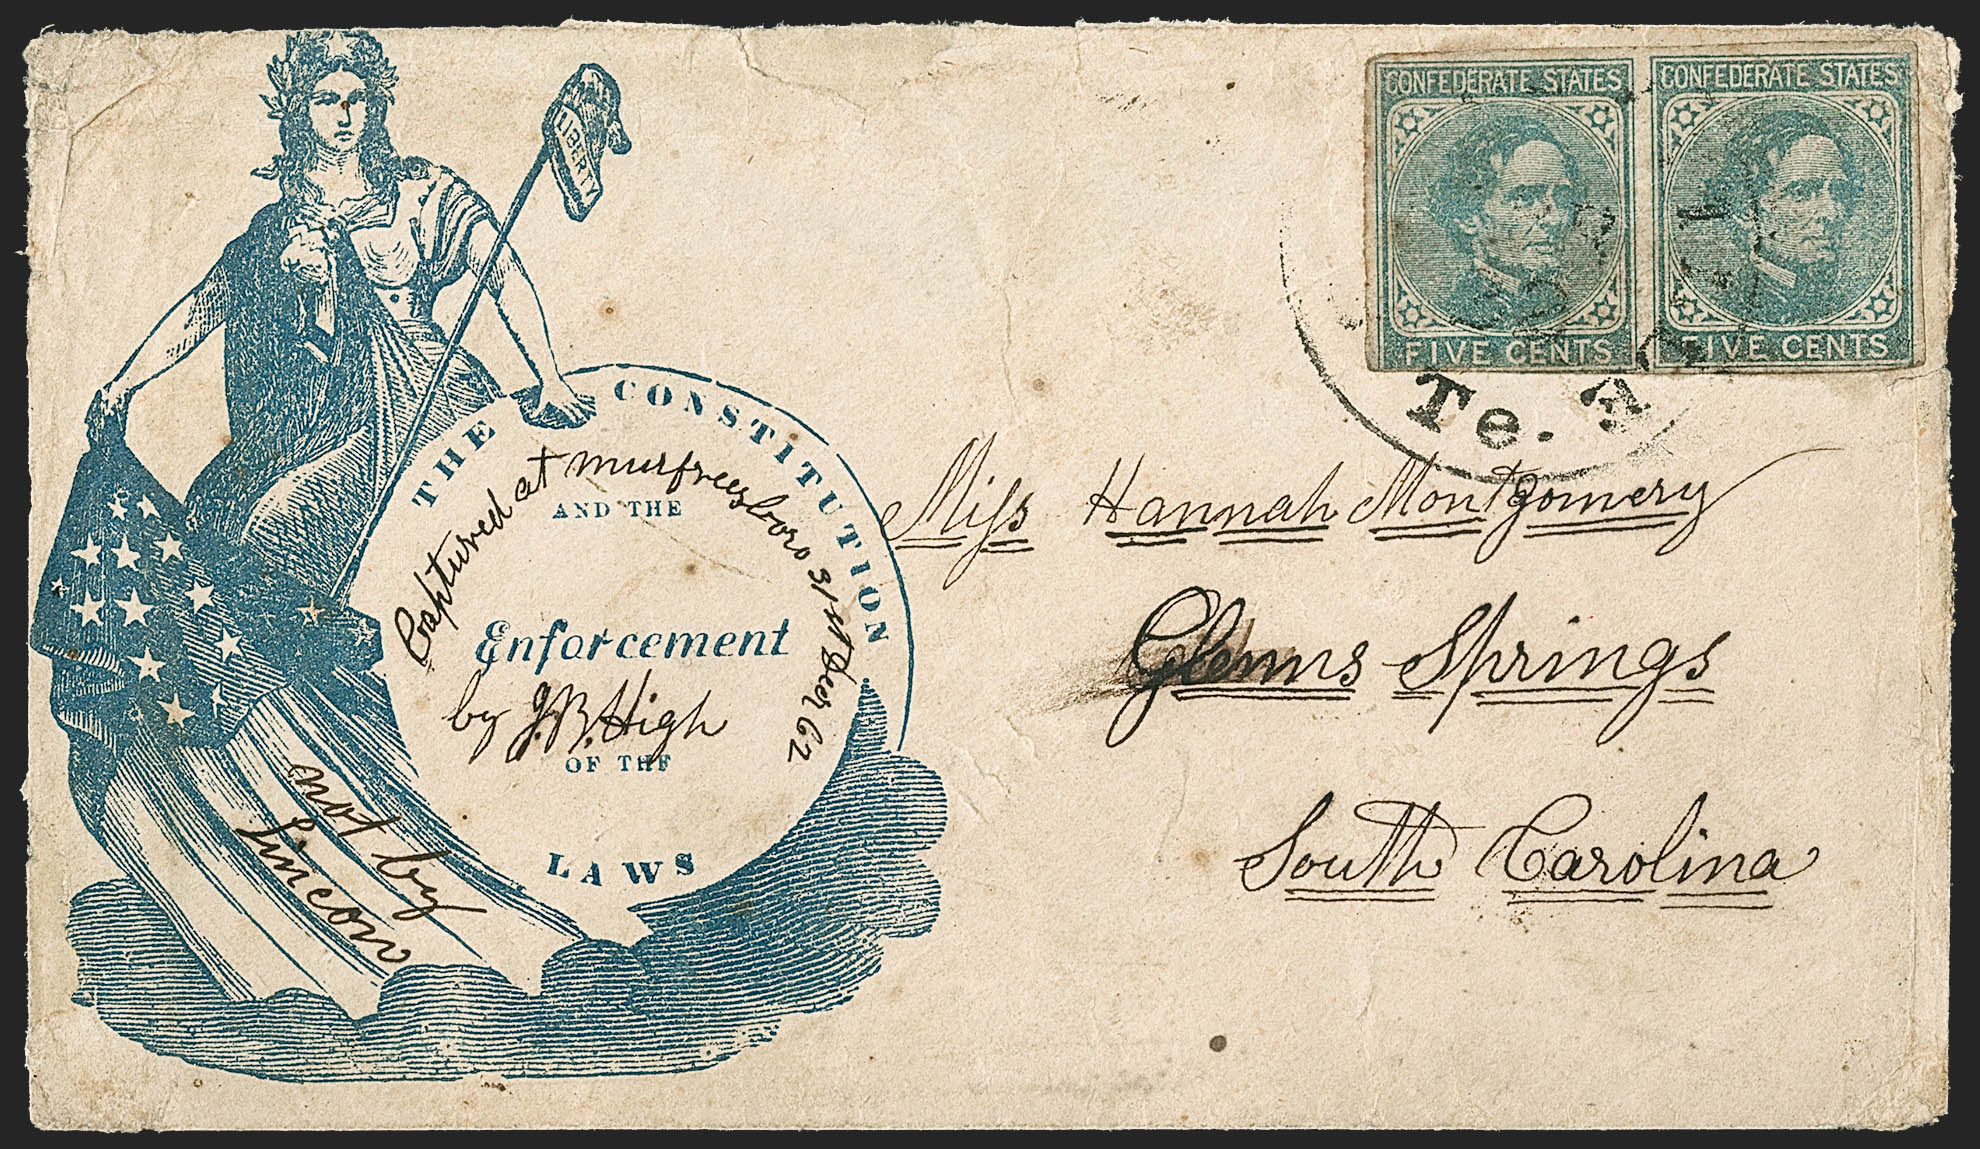 CONFEDERATE STATES
FIVE CENTS
CONFEDERATE STATES
FIVE CENTS
Te.
LIBERTY
THE CONSTITUTION
AND THE
Enforcement
OF THE
LAWS
Captured at Murfreesboro 31st Decr 62
by J. B. High
not by
Lincon
Miss Hannah Montgomery
Glenns Springs
South Carolina